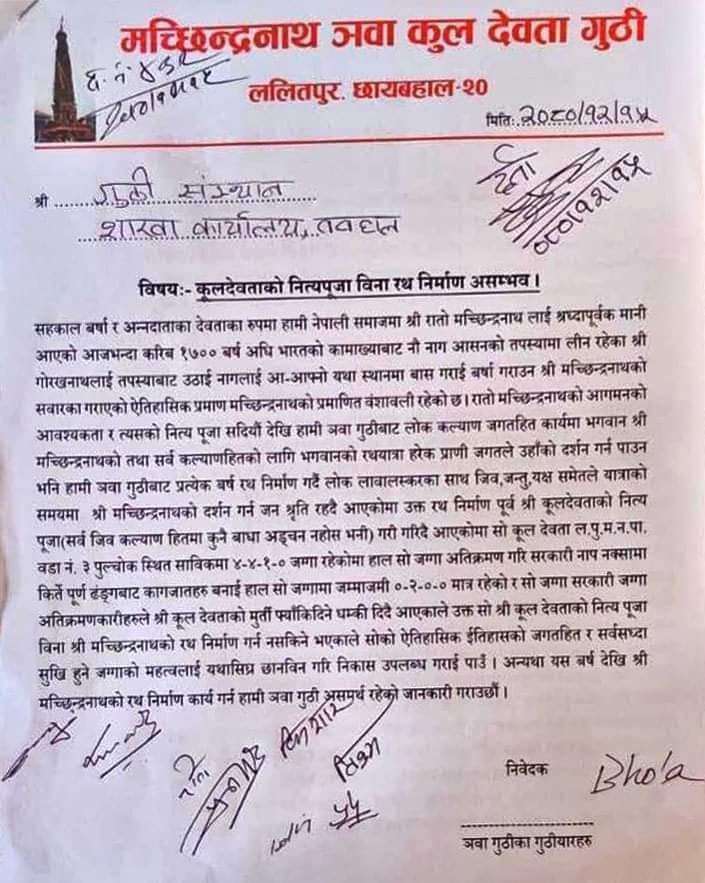 मच्छिन्द्रनाथ ञवा कुल देवता गुठी
ललितपुर. छायबहाल-२०
द. नं.
मितिः २०८०/१२/१५
दर्ता
२०८०/१२/१५
श्री गुठी संस्थान
शाखा कार्यालय, तवहाल
विषयः- कूलदेवताको नित्यपूजा विना रथ निर्माण असम्भव ।
सहकाल बर्षा र अन्नदाताका देवताका रुपमा हामी नेपाली समाजमा श्री रातो मच्छिन्द्रनाथ लाई श्रध्दापूर्वक मानी
आएको आजभन्दा करिब १७०० बर्ष अघि भारतको कामाख्याबाट नौ नाग आसनको तपस्यामा लीन रहेका श्री
गोरखनाथलाई तपस्याबाट उठाई नागलाई आ-आफ्नो यथा स्थानमा बास गराई बर्षा गराउन श्री मच्छिन्द्रनाथको
सवारका गराएको ऐतिहासिक प्रमाण मच्छिन्द्रनाथको प्रमाणित वंशावली रहेको छ । रातो मच्छिन्द्रनाथको आगमनको
आवश्यकता र त्यसको नित्य पूजा सदियौं देखि हामी ञवा गुठीबाट लोक कल्याण जगतहित कार्यमा भगवान श्री
मच्छिन्द्रनाथको तथा सर्व कल्याणहितको लागि भगवानको रथयात्रा हरेक प्राणी जगतले उहाँको दर्शन गर्न पाउन
भनि हामी ञवा गुठीबाट प्रत्येक बर्ष रथ निर्माण गर्दै लोक लावालस्करका साथ जिव,जन्तु,यक्ष समेतले यात्राको
समयमा श्री मच्छिन्द्रनाथको दर्शन गर्न जन श्रुति रहदै आएकोमा उक्त रथ निर्माण पूर्व श्री कूलदेवताको नित्य
पूजा(सर्व जिव कल्याण हितमा कुनै बाधा अड्चन नहोस भनी) गरी गरिदै आएकोमा सो कूल देवता ल.पु.म.न.पा.
वडा नं. ३ पुल्चोक स्थित साविकमा ४-४-१-० जग्गा रहेकोमा हाल सो जग्गा अतिक्रमण गरि सरकारी नाप नक्सामा
किर्ते पूर्ण ढंङ्गबाट कागजातहरु बनाई हाल सो जग्गामा जम्माजमी ०-२-०-० मात्र रहेको र सो जग्गा सरकारी जग्गा
अतिक्रमणकारीहरुले श्री कूल देवताको मुर्ती फ्याँकिदिने धम्की दिदै आएकाले उक्त सो श्री कूल देवताको नित्य पूजा
विना श्री मच्छिन्द्रनाथको रथ निर्माण गर्न नसकिने भएकाले सोको ऐतिहासिक ईतिहासको जगतहित र सर्वसध्दा
सुखि हुने जग्गाको महत्वलाई यथासिघ्र छानविन गरि निकास उपलब्ध गराई पाउँ । अन्यथा यस बर्ष देखि श्री
मच्छिन्द्रनाथको रथ निर्माण कार्य गर्न हामी ञवा गुठी असमर्थ रहेको जानकारी गराउछौं ।
निवेदक
Bhola
ञवा गुठीका गुठीयारहरु